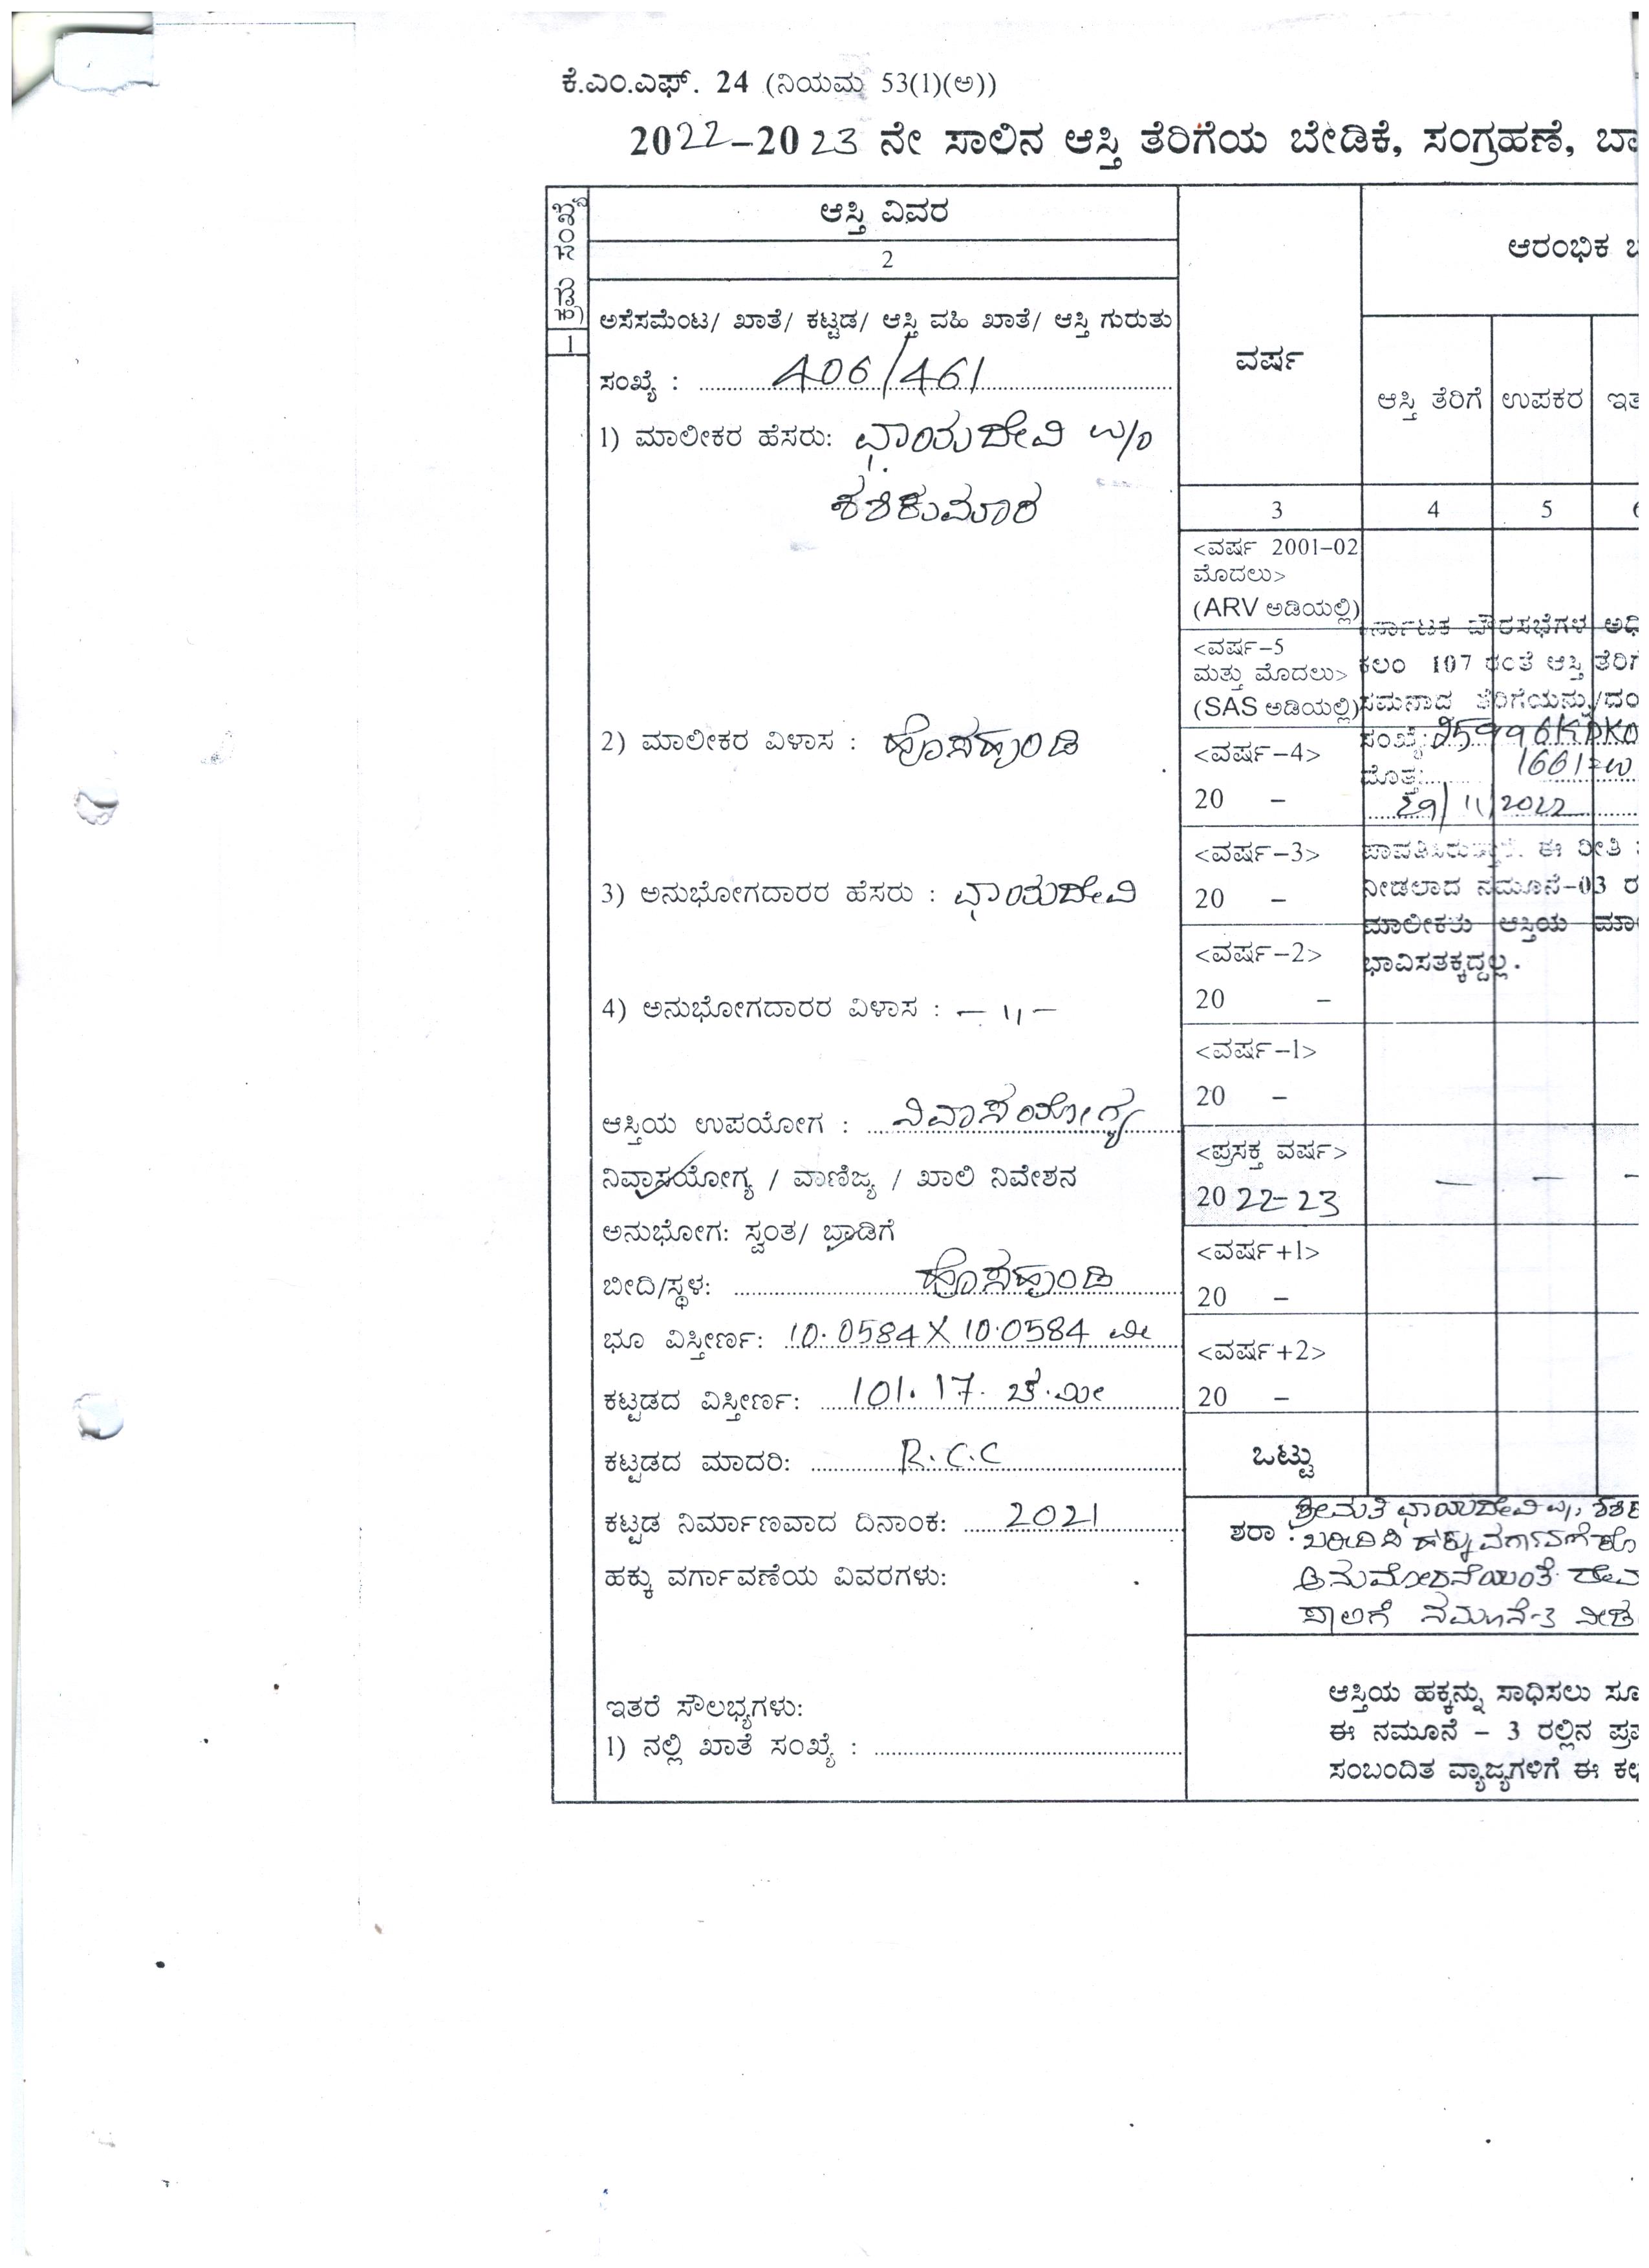 ಕೆ.ಎಂ.ಎಫ್. 24 (ನಿಯಮ 53(1)(ಅ))
2022-2023 ನೇ ಸಾಲಿನ ಆಸ್ತಿ ತೆರಿಗೆಯ ಬೇಡಿಕೆ, ಸಂಗ್ರಹಣೆ, ಬಾ
ಕ್ರಮ ಸಂಖ್ಯೆ
1
ಆಸ್ತಿ ವಿವರ
2
ಅಸೆಸಮೆಂಟ/ ಖಾತೆ/ ಕಟ್ಟಡ/ ಆಸ್ತಿ ವಹಿ ಖಾತೆ/ ಆಸ್ತಿ ಗುರುತು
ಸಂಖ್ಯೆ : 406/461
1) ಮಾಲೀಕರ ಹೆಸರು: ಛಾಯದೇವಿ w/o
ಶಶಿಕುಮಾರ
2) ಮಾಲೀಕರ ವಿಳಾಸ : ಹೊಸಹುಂಡಿ
3) ಅನುಭೋಗದಾರರ ಹೆಸರು : ಛಾಯದೇವಿ
4) ಅನುಭೋಗದಾರರ ವಿಳಾಸ : – 11 –
ಆಸ್ತಿಯ ಉಪಯೋಗ : ನಿವಾಸಯೋಗ್ಯ
ನಿವಾಸಯೋಗ್ಯ / ವಾಣಿಜ್ಯ / ಖಾಲಿ ನಿವೇಶನ
ಅನುಭೋಗ: ಸ್ವಂತ/ ಬಾಡಿಗೆ
ಬೀದಿ/ಸ್ಥಳ: ಹೊಸಹುಂಡಿ
ಭೂ ವಿಸ್ತೀರ್ಣ: 10.0584 X 10.0584 ಮೀ
ಕಟ್ಟಡದ ವಿಸ್ತೀರ್ಣ: 101.17 ಚ.ಮೀ
ಕಟ್ಟಡದ ಮಾದರಿ: R.C.C
ಕಟ್ಟಡ ನಿರ್ಮಾಣವಾದ ದಿನಾಂಕ: 2021
ಹಕ್ಕು ವರ್ಗಾವಣೆಯ ವಿವರಗಳು:
ಇತರೆ ಸೌಲಭ್ಯಗಳು:
1) ನಲ್ಲಿ ಖಾತೆ ಸಂಖ್ಯೆ :
ವರ್ಷ
3
<ವರ್ಷ 2001-02
ಮೊದಲು>
(ARV ಅಡಿಯಲ್ಲಿ)
<ವರ್ಷ-5
ಮತ್ತು ಮೊದಲು>
(SAS ಅಡಿಯಲ್ಲಿ)
<ವರ್ಷ-4>
20 –
<ವರ್ಷ-3>
20 –
<ವರ್ಷ-2>
20 –
<ವರ್ಷ-1>
20 –
<ಪ್ರಸಕ್ತ ವರ್ಷ>
2022-23
<ವರ್ಷ+1>
20 –
<ವರ್ಷ+2>
20 –
ಒಟ್ಟು
ಆರಂಭಿಕ ಬ
ಆಸ್ತಿ ತೆರಿಗೆ ಉಪಕರ ಇತ
4 5 6
ರ್ನಾಟಕ ಪೌರಸಭೆಗಳ ಅಧಿ
ಕಲಂ 107 ರಂತೆ ಆಸ್ತಿ ತೆರಿಗೆ
ಸಮನಾದ ತೆರಿಗೆಯನ್ನು/ದಂ
ಸಂಖ್ಯೆ:
ಮೊತ್ತ: 1661=
29/11/2022
ಪಾವತಿಸಿರುತ್ತಾರೆ. ಈ ರೀತಿ
ನೀಡಲಾದ ನಮೂನೆ-03 ರ
ಮಾಲೀಕರು ಆಸ್ತಿಯ ಮಾಲ
ಭಾವಿಸತಕ್ಕದ್ದಲ್ಲ.
– – –
ಶರಾ : ಶ್ರೀಮತಿ ಛಾಯದೇವಿ w/o ಶಶಿ
ಖರೀದಿಸಿ ಹಕ್ಕು ವರ್ಗಾವಣೆ ಕೋ
ಅನುಮೋದನೆಯಂತೆ
ಸಾಲಿಗೆ ನಮೂನೆ-3 ನೀಡ
ಆಸ್ತಿಯ ಹಕ್ಕನ್ನು ಸಾಧಿಸಲು ಸೂ
ಈ ನಮೂನೆ – 3 ರಲ್ಲಿನ ಪ್ರ
ಸಂಬಂದಿತ ವ್ಯಾಜ್ಯಗಳಿಗೆ ಈ ಕಛ